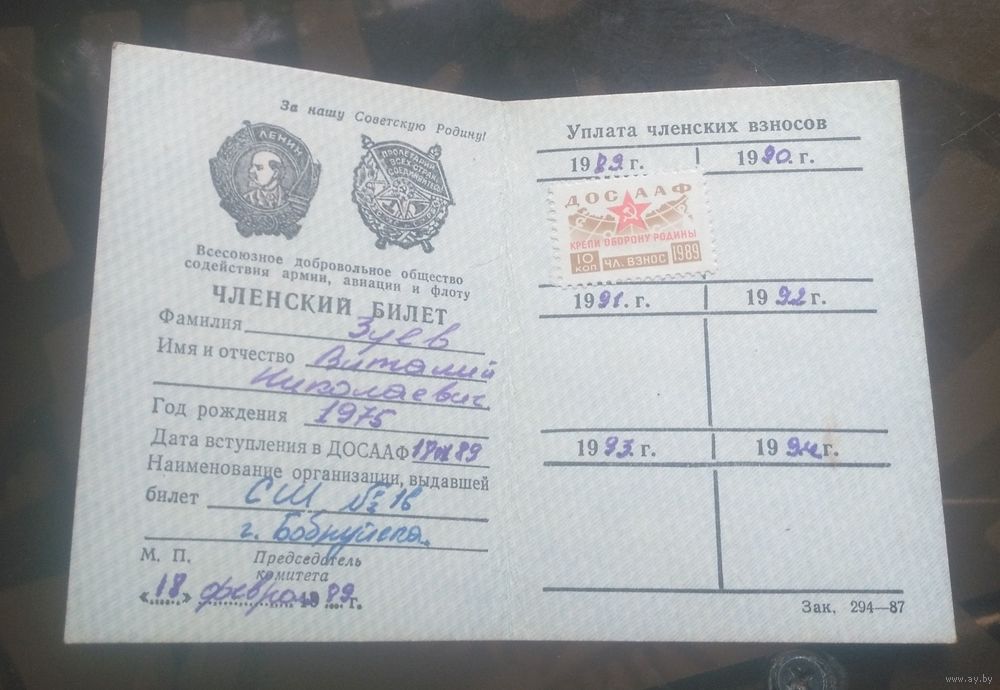 За нашу Советскую Родину!
ЛЕНИН
ПРОЛЕТАРИИ
ВСЕХ СТРАН
СОЕДИНЯЙТЕСЬ
Всесоюзное добровольное общество
содействия армии, авиации и флоту
ЧЛЕНСКИЙ БИЛЕТ
Фамилия Зуев
Имя и отчество Виталий
Николаевич
Год рождения 1975
Дата вступления в ДОСААФ 89
Наименование организации, выдавшей
билет СШ № 16
г. Бобруйска.
М. П. Председатель
комитета
«18» февраля 1989 г.
Уплата членских взносов
1989 г. 1990. г.
ДОСААФ
КРЕПИ ОБОРОНУ РОДИНЫ
10 КОП ЧЛ. ВЗНОС 1989
1991. г. 1992 г.
1993. г. 1994. г.
Зак. 294—87
www.ay.by